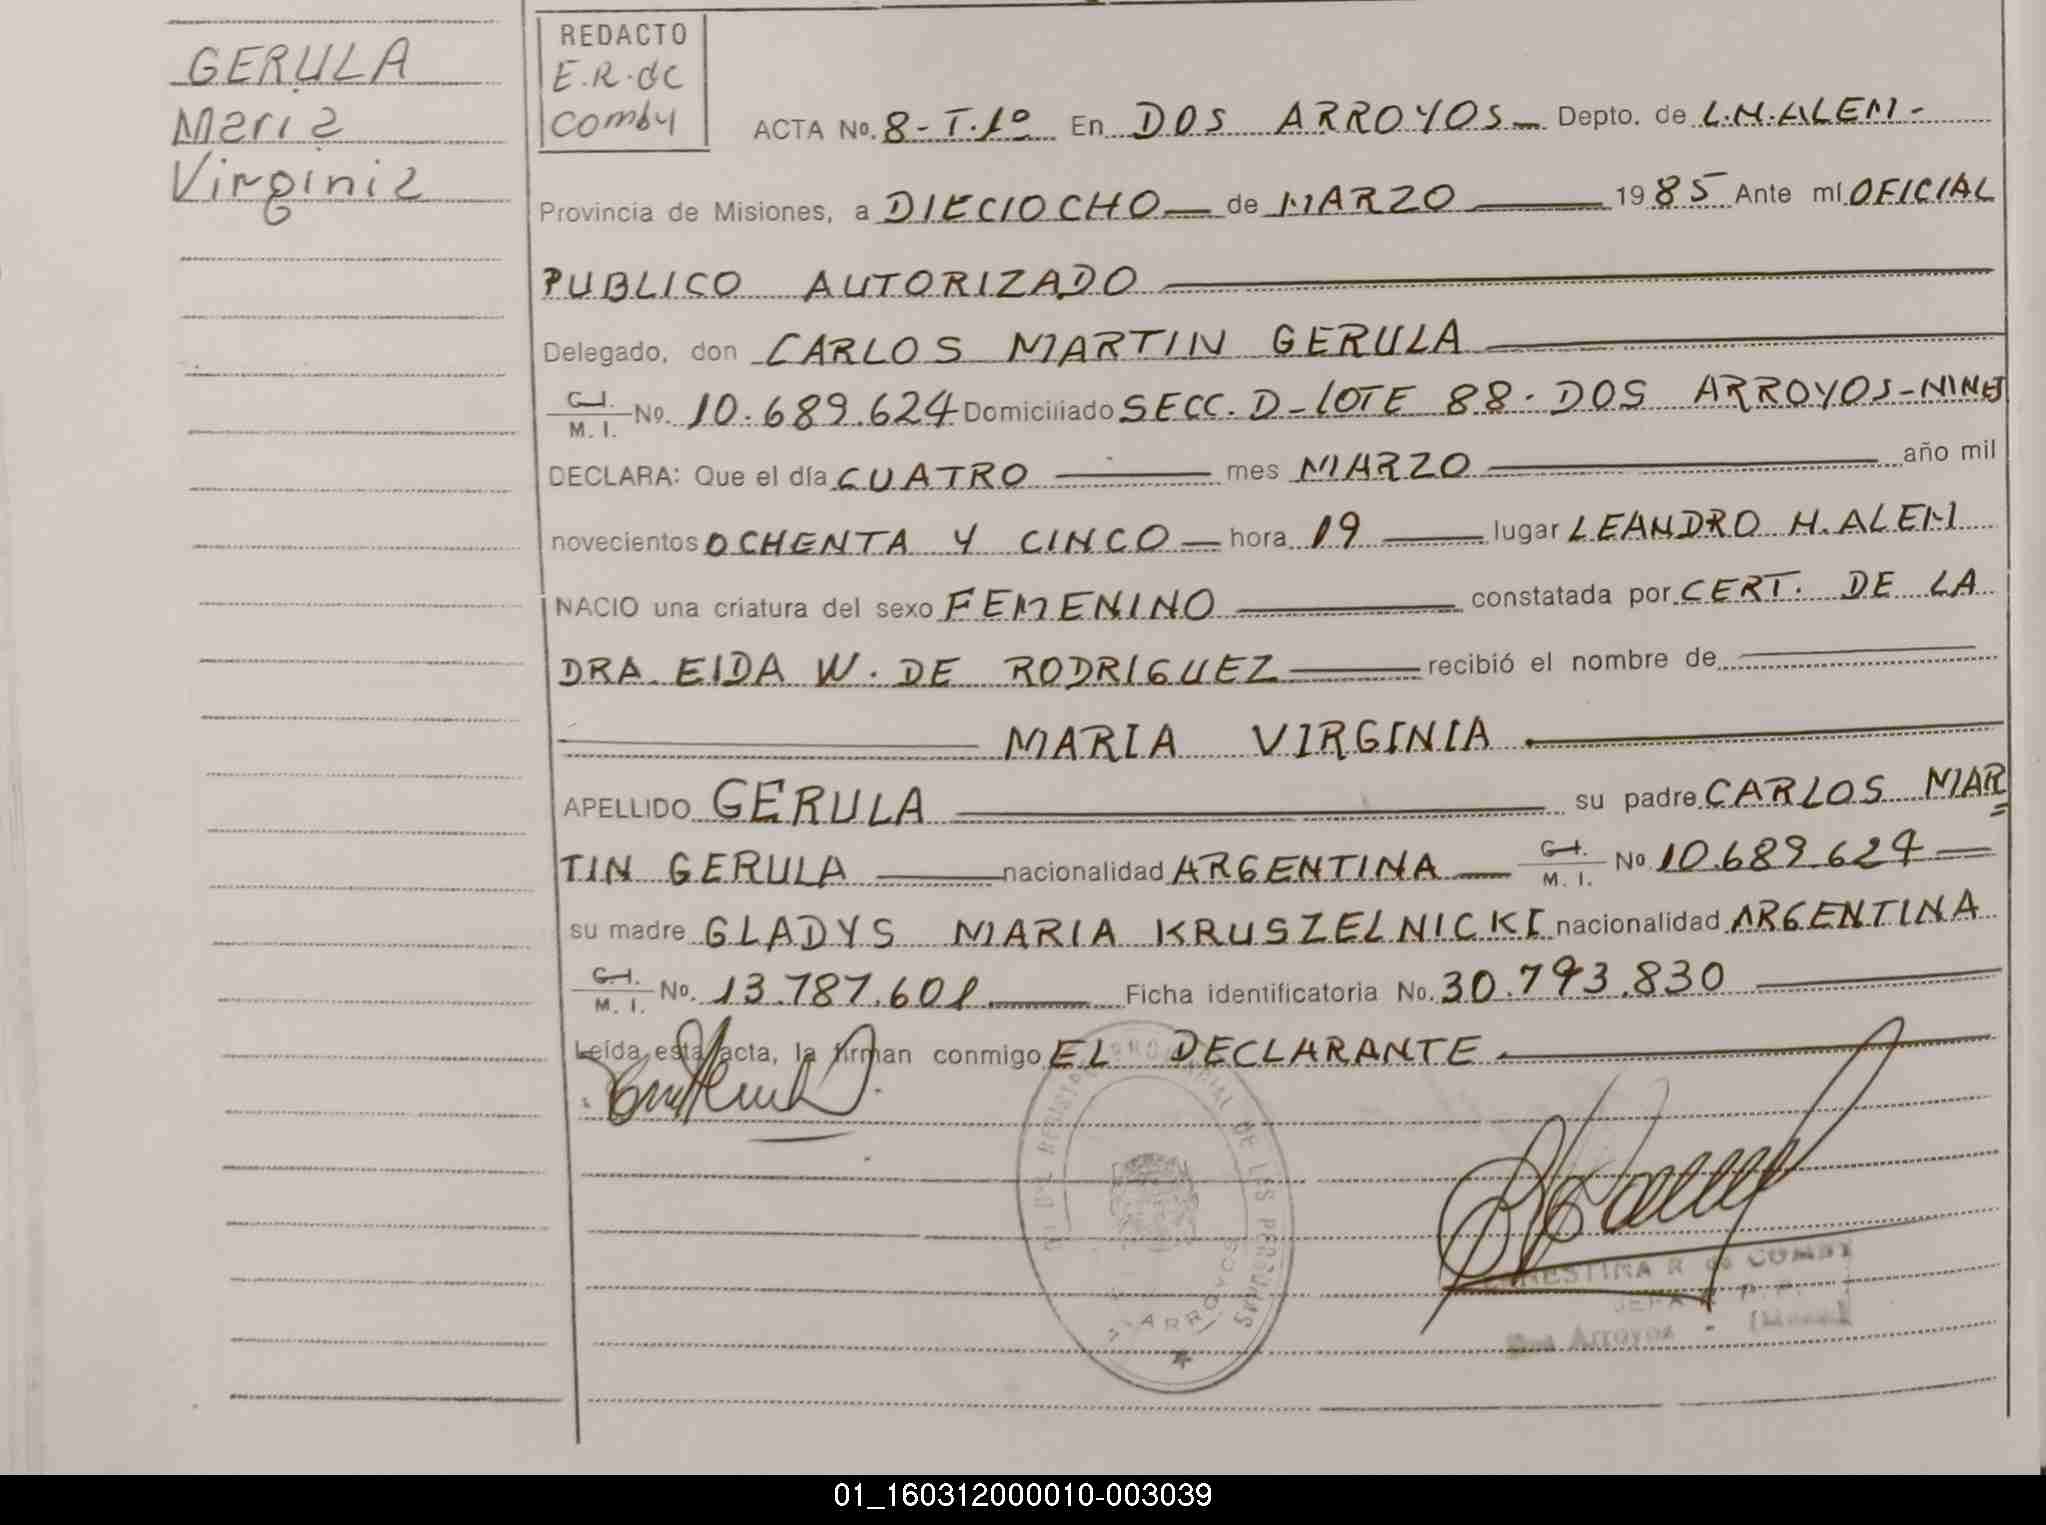 GERULA
Maria
Virginia
REDACTO
E.R. de
Comby
ACTA No. 8-T.1º En DOS ARROYOS — Depto. de L.N.ALEM -
Provincia de Misiones, a DIECIOCHO — de MARZO — 1985 Ante mí OFICIAL
PUBLICO AUTORIZADO
Delegado, don CARLOS MARTIN GERULA
C.I. M. I. No. 10.689.624 Domiciliado SECC. D-LOTE 88. DOS ARROYOS-
DECLARA: Que el día CUATRO — mes MARZO — año mil
novecientos OCHENTA Y CINCO — hora 19 — lugar LEANDRO N. ALEM
NACIO una criatura del sexo FEMENINO — constatada por CERT. DE LA
DRA. EIDA W. DE RODRIGUEZ — recibió el nombre de
MARIA VIRGINIA
APELLIDO GERULA — su padre CARLOS MAR=
TIN GERULA — nacionalidad ARGENTINA — C.I. M. I. No. 10.689.624
su madre GLADYS MARIA KRUSZELNICKI nacionalidad ARGENTINA
C.I. M. I. No. 13.787.601 — Ficha identificatoria No. 30.793.830
Leída esta acta, la firman conmigo EL DECLARANTE
DEL REGISTRO PROVINCIAL DE LAS PERSONAS
ARROYOS
ERNESTINA R de COMBY
JEFA
Dos Arroyos -
01_160312000010-003039